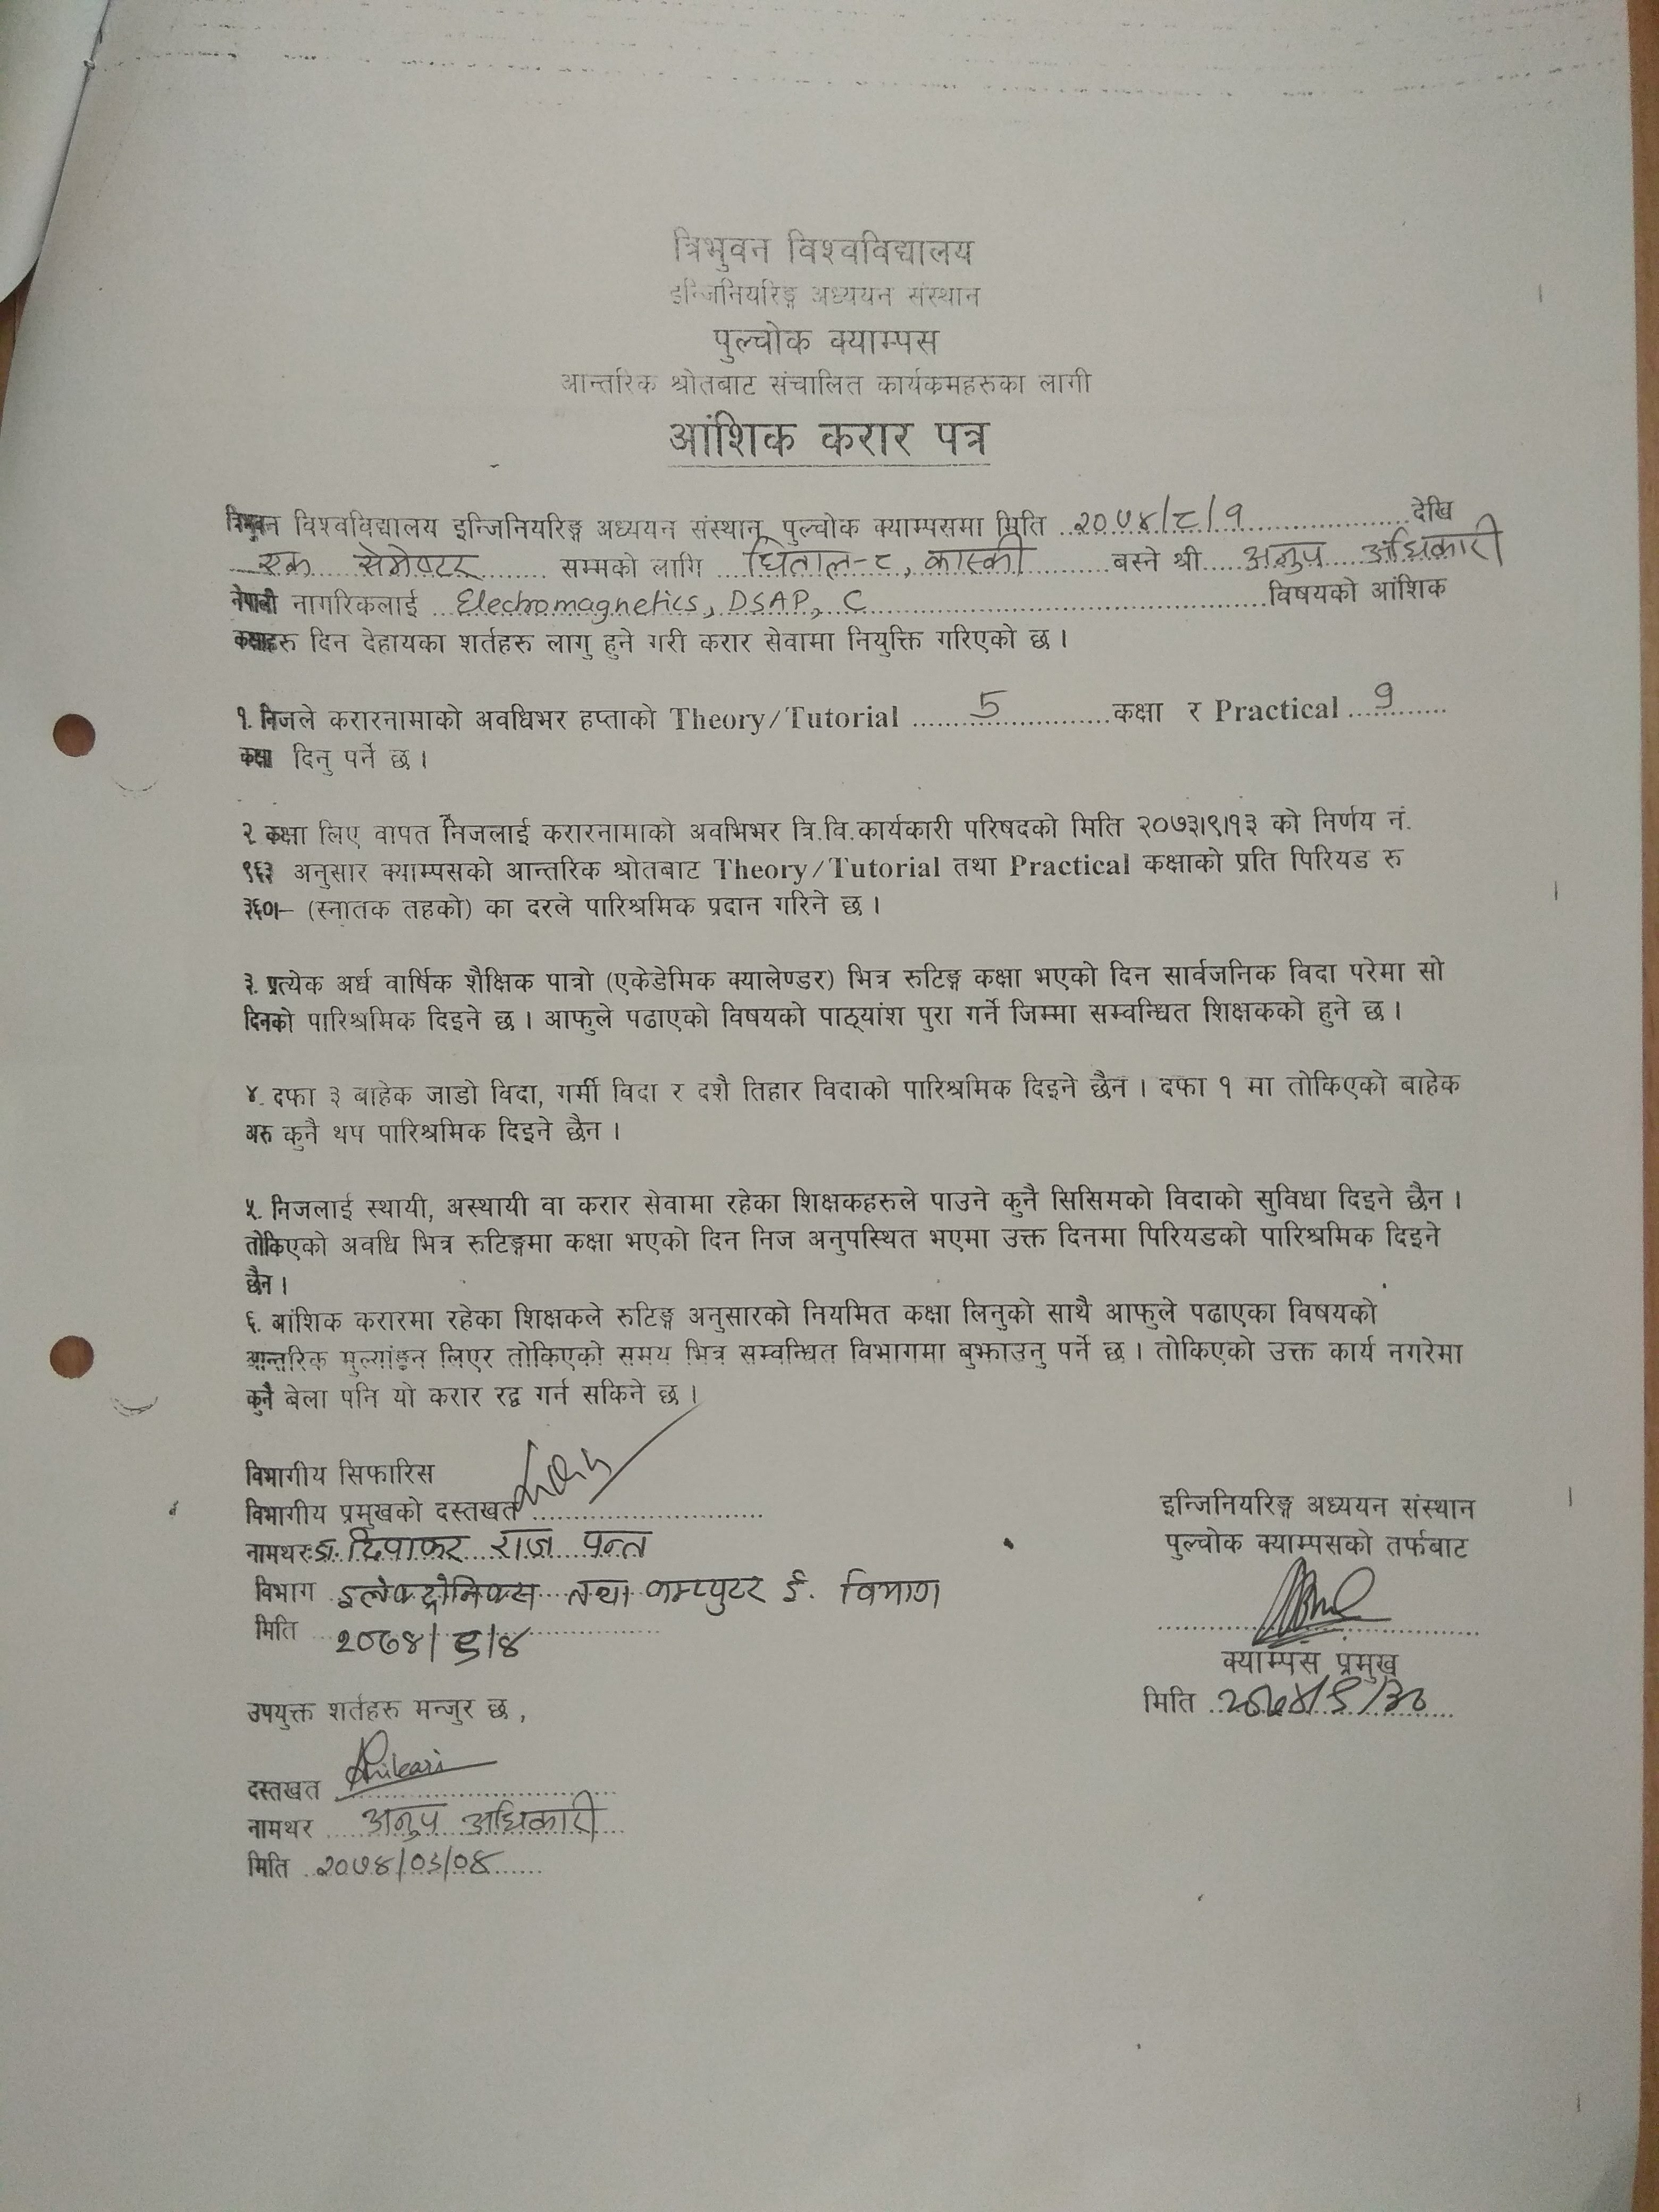 त्रिभुवन विश्वविद्यालय
इन्जिनियरिङ्ग अध्ययन संस्थान
पुल्चोक क्याम्पस
आन्तरिक श्रोतबाट संचालित कार्यकमहरुका लागी
आंशिक करार पत्र
त्रिभुवन विश्वविद्यालय इन्जिनियरिङ्ग अध्ययन संस्थान, पुल्चोक क्याम्पसमा मिति २०७४/८/१ देखि
एक सेमेष्टर सम्मको लागि घिताल-८, कास्की बस्ने श्री अनुप अधिकारी
नेपाली नागरिकलाई Electromagnetics, DSAP, C विषयको आंशिक
कक्षाहरु दिन देहायका शर्तहरु लागु हुने गरी करार सेवामा नियुक्ति गरिएको छ ।
१. निजले करारनामाको अवधिभर हप्ताको Theory/Tutorial 5 कक्षा र Practical 9
कक्षा दिनु पर्ने छ ।
२. कक्षा लिए वापत निजलाई करारनामाको अवभिभर त्रि.वि.कार्यकारी परिषदको मिति २०७३।९।१३ को निर्णय नं.
९६३ अनुसार क्याम्पसको आन्तरिक श्रोतबाट Theory/Tutorial तथा Practical कक्षाको प्रति पिरियड रु
३६०।– (स्नातक तहको) का दरले पारिश्रमिक प्रदान गरिने छ ।
३. प्रत्येक अर्ध वार्षिक शैक्षिक पात्रो (एकेडेमिक क्यालेण्डर) भित्र रुटिङ्ग कक्षा भएको दिन सार्वजनिक विदा परेमा सो
दिनको पारिश्रमिक दिइने छ । आफुले पढाएको विषयको पाठ्यांश पुरा गर्ने जिम्मा सम्वन्धित शिक्षकको हुने छ ।
४. दफा ३ बाहेक जाडो विदा, गर्मी विदा र दशै तिहार विदाको पारिश्रमिक दिइने छैन । दफा १ मा तोकिएको बाहेक
अरु कुनै थप पारिश्रमिक दिइने छैन ।
५. निजलाई स्थायी, अस्थायी वा करार सेवामा रहेका शिक्षकहरुले पाउने कुनै सिसिमको विदाको सुविधा दिइने छैन ।
तोकिएको अवधि भित्र रुटिङ्गमा कक्षा भएको दिन निज अनुपस्थित भएमा उक्त दिनमा पिरियडको पारिश्रमिक दिइने
छैन ।
६. आंशिक करारमा रहेका शिक्षकले रुटिङ्ग अनुसारको नियमित कक्षा लिनुको साथै आफुले पढाएका विषयको
आन्तरिक मुल्यांङ्कन लिएर तोकिएको समय भित्र सम्वन्धित विभागमा बुझाउनु पर्ने छ । तोकिएको उक्त कार्य नगरेमा
कुनै बेला पनि यो करार रद्द गर्न सकिने छ ।
विभागीय सिफारिस
विभागीय प्रमुखको दस्तखत
नामथर: डा. दिवाकर राज पन्त
विभाग इलेक्ट्रोनिक्स तथा कम्प्युटर ई. विभाग
मिति २०७४/९/४
इन्जिनियरिङ्ग अध्ययन संस्थान
पुल्चोक क्याम्पसको तर्फबाट
क्याम्पस प्रमुख
मिति
उपयुक्त शर्तहरु मन्जुर छ,
दस्तखत
नामथर अनुप अधिकारी
मिति २०७४/०९/०४